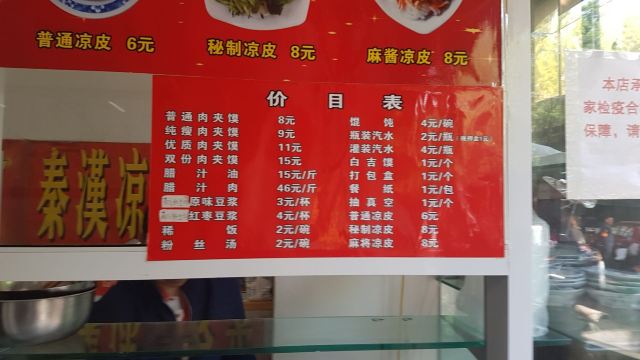 普通凉皮 6元
秘制凉皮 8元
麻酱凉皮 8元
价目表
普通肉夹馍 8元
纯瘦肉夹馍 9元
优质肉夹馍 11元
双份肉夹馍 15元
腊汁油 15元/斤
腊汁肉 46元/斤
原味豆浆 3元/杯
红枣豆浆 4元/杯
稀饭 2元/碗
粉丝汤 2元/碗
馄饨 4元/碗
瓶装汽水 2元/瓶
灌装汽水 4元/瓶
白吉馍 1元/个
打包盒 1元/个
餐纸 1元/包
抽真空 1元/个
普通凉皮 6元
秘制凉皮 8元
麻将凉皮 8元
秦漢凉
本店承
家检疫合
保障，请